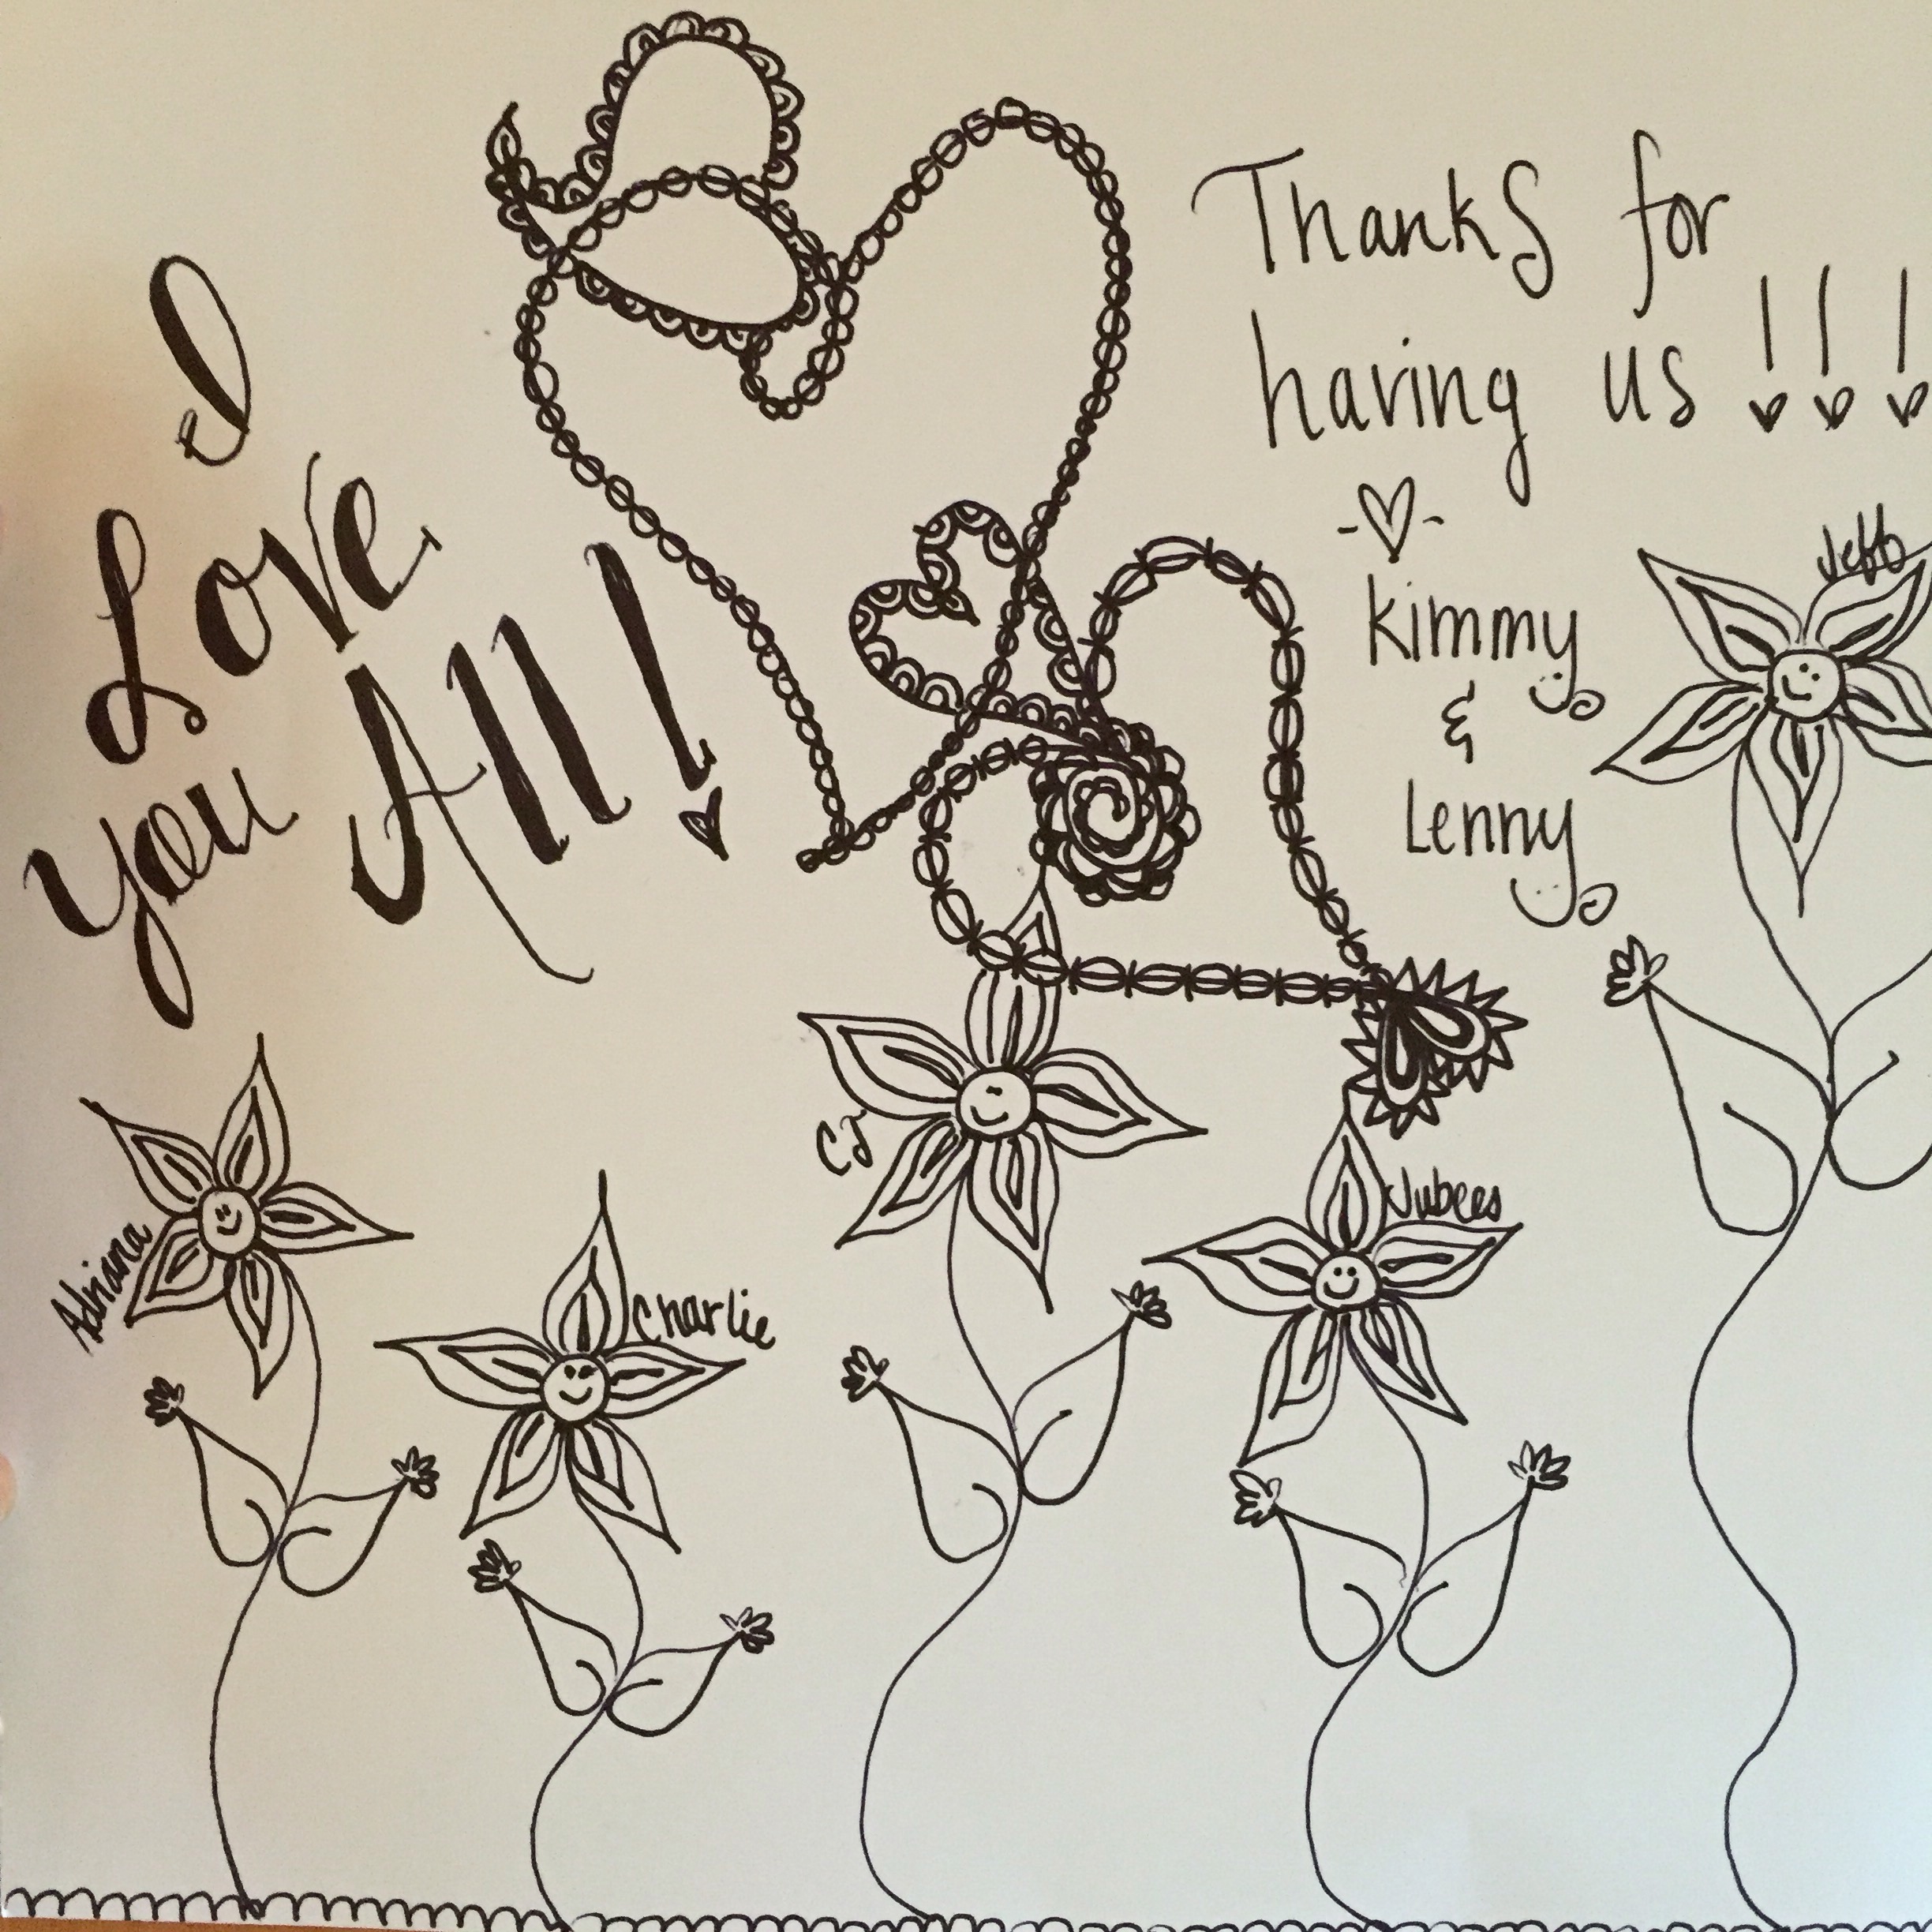 I
Love
you
All!
Thanks for
having us!!!
Kimmy
&
Lenny
Jeff
CJ
Jubees
Adriana
Charlie